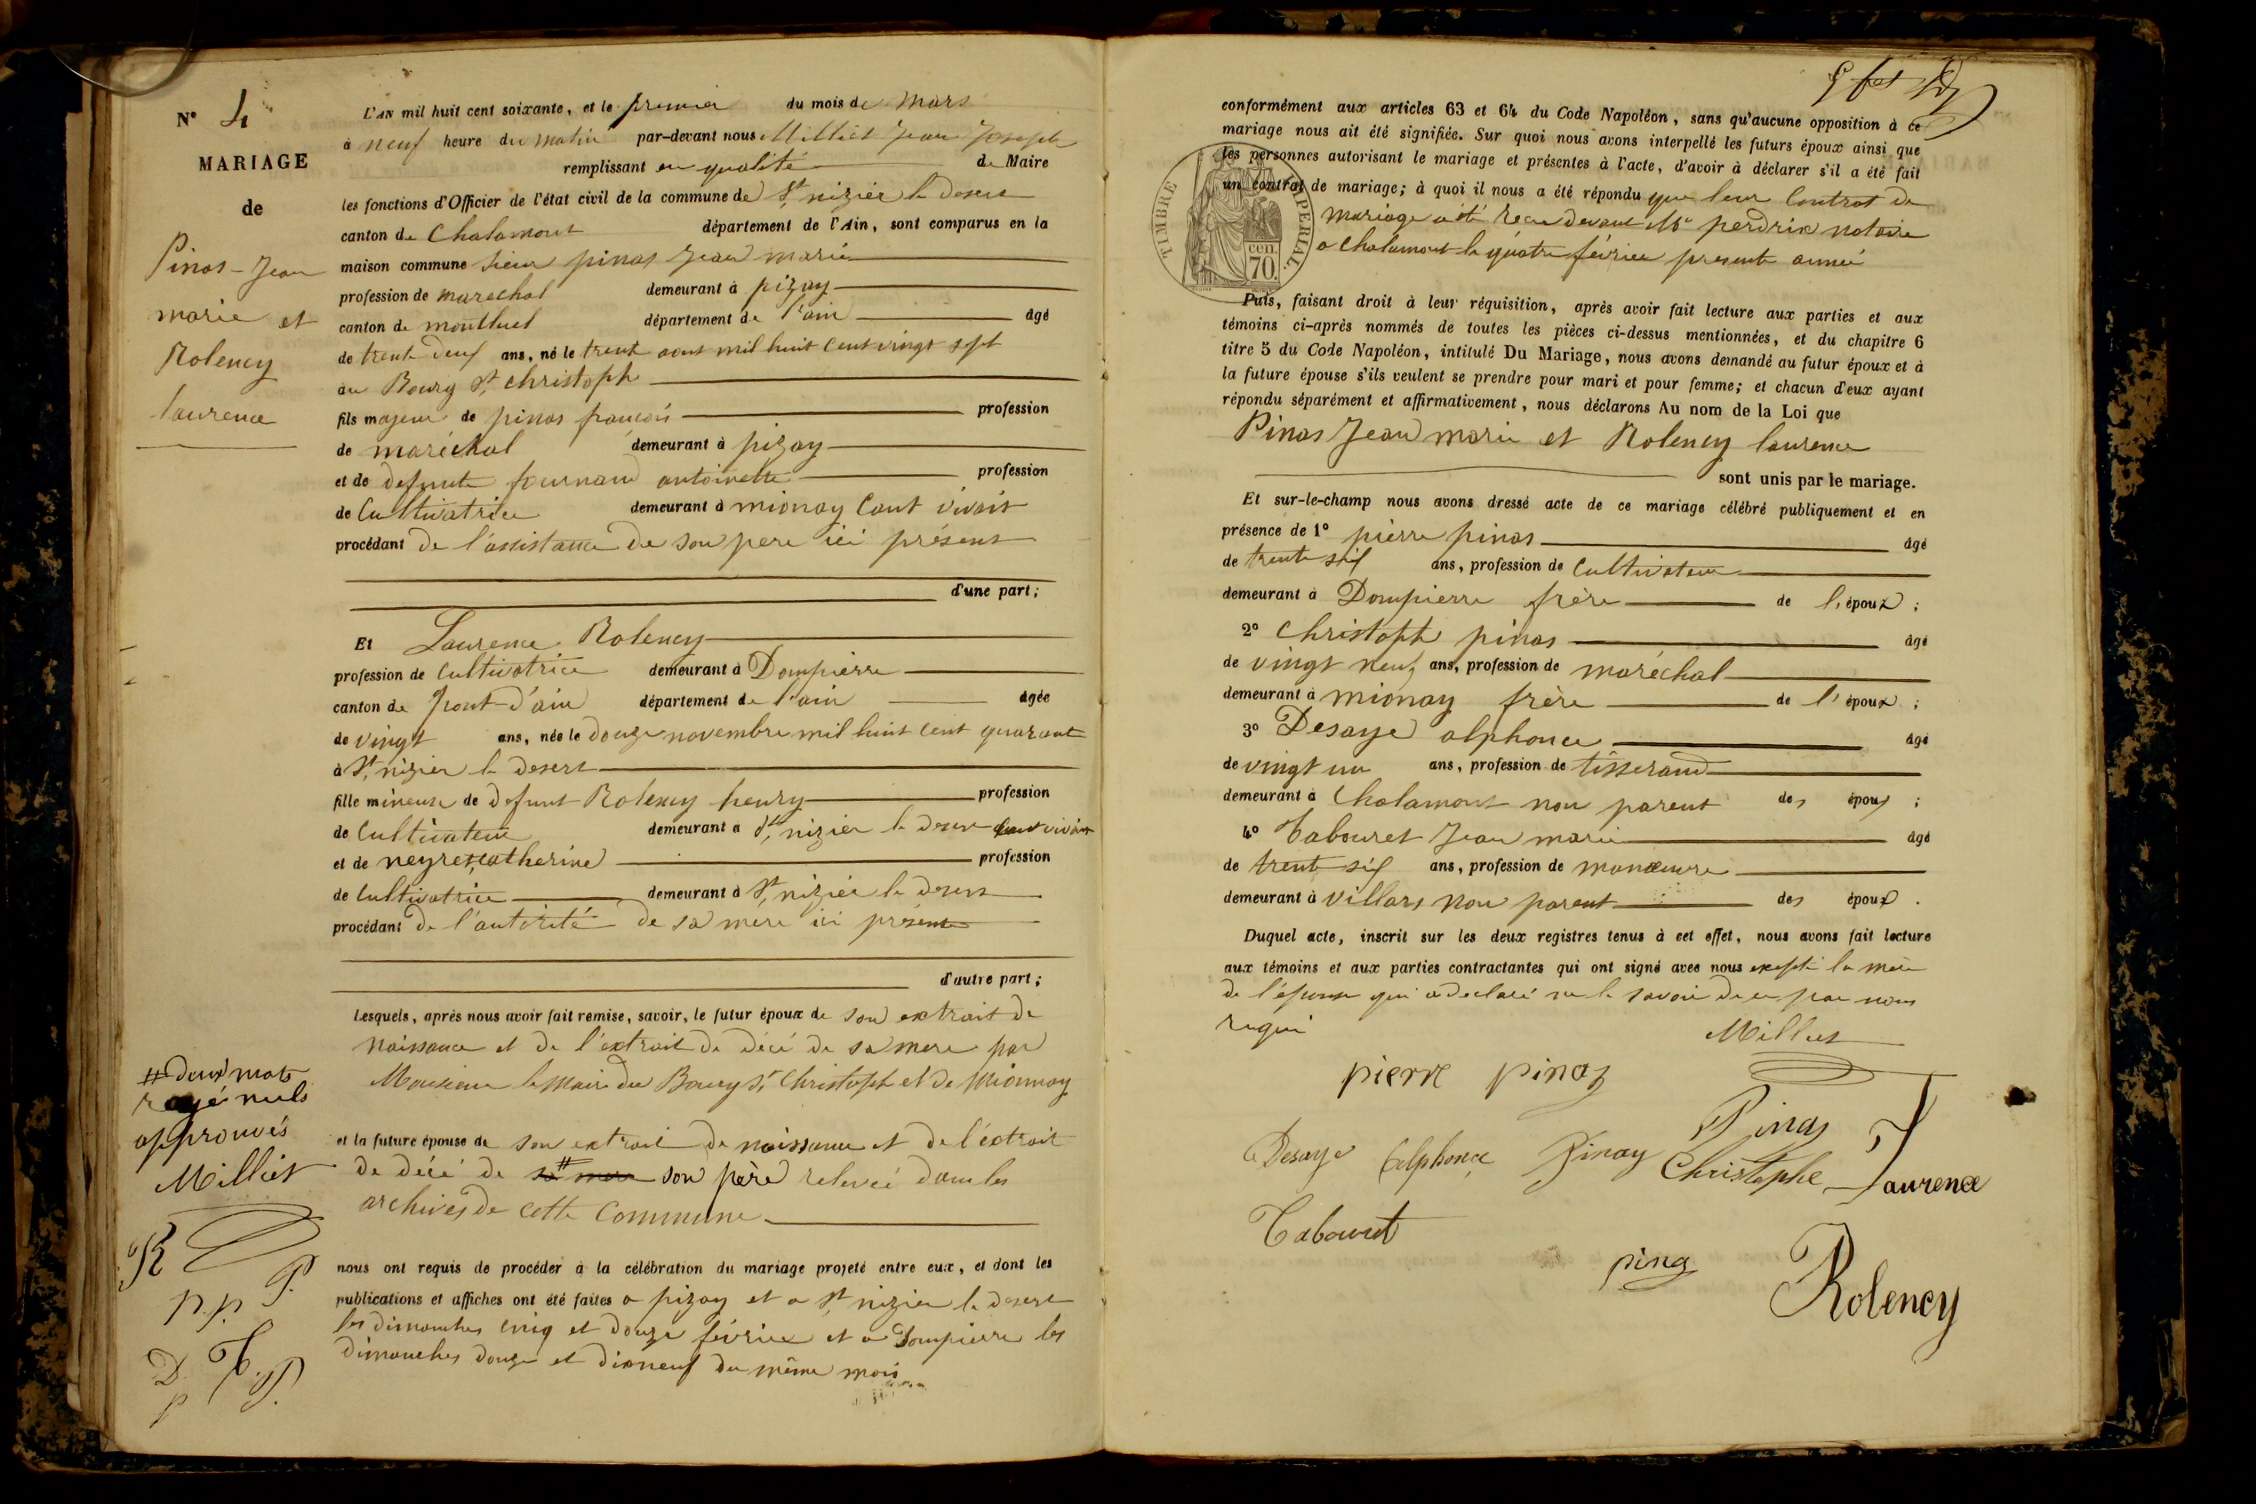 N° 4
MARIAGE
de
Pinas - Jean
marie et
Rolency
laurence
L'AN mil huit cent soixante, et le premier du mois de Mars
à neuf heure du matin par-devant nous Milliet Jean Joseph
remplissant en qualité de Maire
les fonctions d'Officier de l'état civil de la commune de St nizier le desert
canton de Chalamont département de l'Ain, sont comparus en la
maison commune sieur pinas Jean marie
profession de marechal demeurant à pizay
canton de montluel département de l'ain âgé
de trente deux ans, né le trente aout mil huit cent vingt sept
au Bourg St christoph
fils majeur de pinas francois profession
de maréchal demeurant à pizay
et de defunte antoinette profession
de Cultivatrice demeurant à mionay vivait
procédant de l'assistance de son pere ici présent
d'une part;
Et Laurence Rolency
profession de Cultivatrice demeurant à Dompierre
canton de Pont-d'ain département de l'ain âgée
de vingt ans, née le douze novembre mil huit cent quarante
à St nizier le desert
fille mineure de defunt Rolency henry profession
de Cultivateur demeurant a St nizier le desert
et de neyret catherine profession
de Cultivatrice demeurant à St nizier le desert
procédant de l'autorité de sa mére ici présente
d'autre part;
Lesquels, après nous avoir fait remise, savoir, le futur époux de son extrait de
naissance et de l'extrait de décé de sa mere par
Monsieur le Maire du Bourg St Christoph et de Mionnay
et la future épouse de son extrait de naissance et de l'extrait
de décé de sa # mere son père relevé dans les
archives de cette Commune
# deux mots
rayé nuls
approuvés
Milliet
R
P.
p.p.
D. T. P.
p
nous ont requis de procéder à la célébration du mariage projeté entre eux, et dont les
publications et affiches ont été faites a pizay et a St nizier le desert
les dimanches cinq et douze février et a Dompierre les
dimanches douze et dixneuf du même mois
conformément aux articles 63 et 64 du Code Napoléon, sans qu'aucune opposition à ce
mariage nous ait été signifiée. Sur quoi nous avons interpellé les futurs époux ainsi que
les personnes autorisant le mariage et présentes à l'acte, d'avoir à déclarer s'il a été fait
un contrat de mariage; à quoi il nous a été répondu que leur Contrat de
mariage a été recu devant Me perdrix notaire
a Chalamont le quatre février presente année
TIMBRE IMPERIAL.
cen
70.
Puis, faisant droit à leur réquisition, après avoir fait lecture aux parties et aux
témoins ci-après nommés de toutes les pièces ci-dessus mentionnées, et du chapitre 6
titre 5 du Code Napoléon, intitulé Du Mariage, nous avons demandé au futur époux et à
la future épouse s'ils veulent se prendre pour mari et pour femme; et chacun d'eux ayant
répondu séparément et affirmativement, nous déclarons Au nom de la Loi que
Pinas Jean marie et Rolency laurence
sont unis par le mariage.
Et sur-le-champ nous avons dressé acte de ce mariage célébré publiquement et en
présence de 1° pierre pinas âgé
de trente six ans, profession de Cultivateur
demeurant à Dompierre frère de l'époux;
2° christoph pinas âgé
de vingt neuf ans, profession de maréchal
demeurant à mionay frère de l'époux;
3° Desaye alphonce âgé
de vingt un ans, profession de tisserand
demeurant à Chalamont non parent des époux;
4° Tabouret Jean marie âgé
de trente six ans, profession de manœuvre
demeurant à villars non parent des époux.
Duquel acte, inscrit sur les deux registres tenus à cet effet, nous avons fait lecture
aux témoins et aux parties contractantes qui ont signé avec nous excepté la mère
de l'épouse qui a declaré ne le savoir de ce par nous
requi
Milliet
pierre pinaz
Pinas
Desaye Alphonce Pinay Christophe Laurence
Tabouret
pina
Rolency